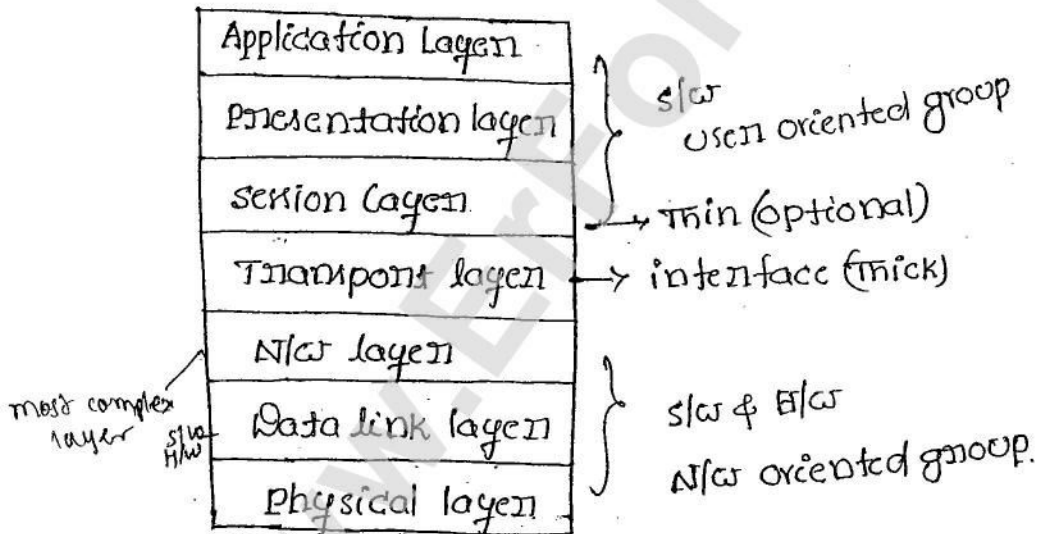 Application Layer
Presentation layer
session layer
Transport layer
N/w layer
Data link layer
Physical layer
s/w
user oriented group
→ Thin (optional)
→ interface (Thick)
most complex
layer
s/w
H/w
s/w & H/w
N/w oriented group.